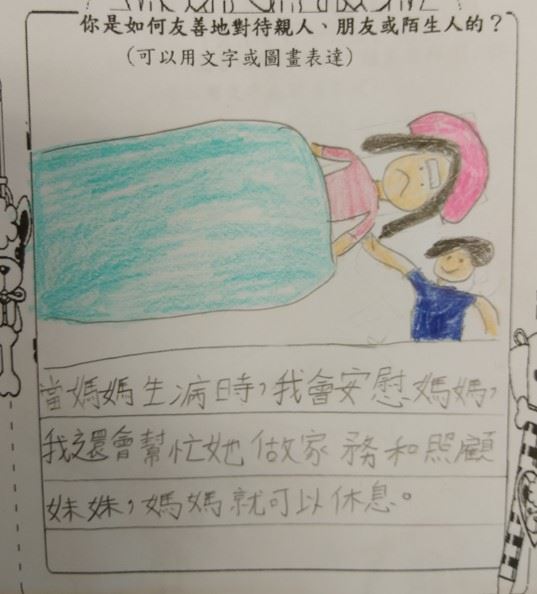 你是如何友善地對待親人、朋友或陌生人的？
(可以用文字或圖畫表達)
當媽媽生病時，我會安慰媽媽，
我還會幫忙她做家務和照顧
妹妹，媽媽就可以休息。